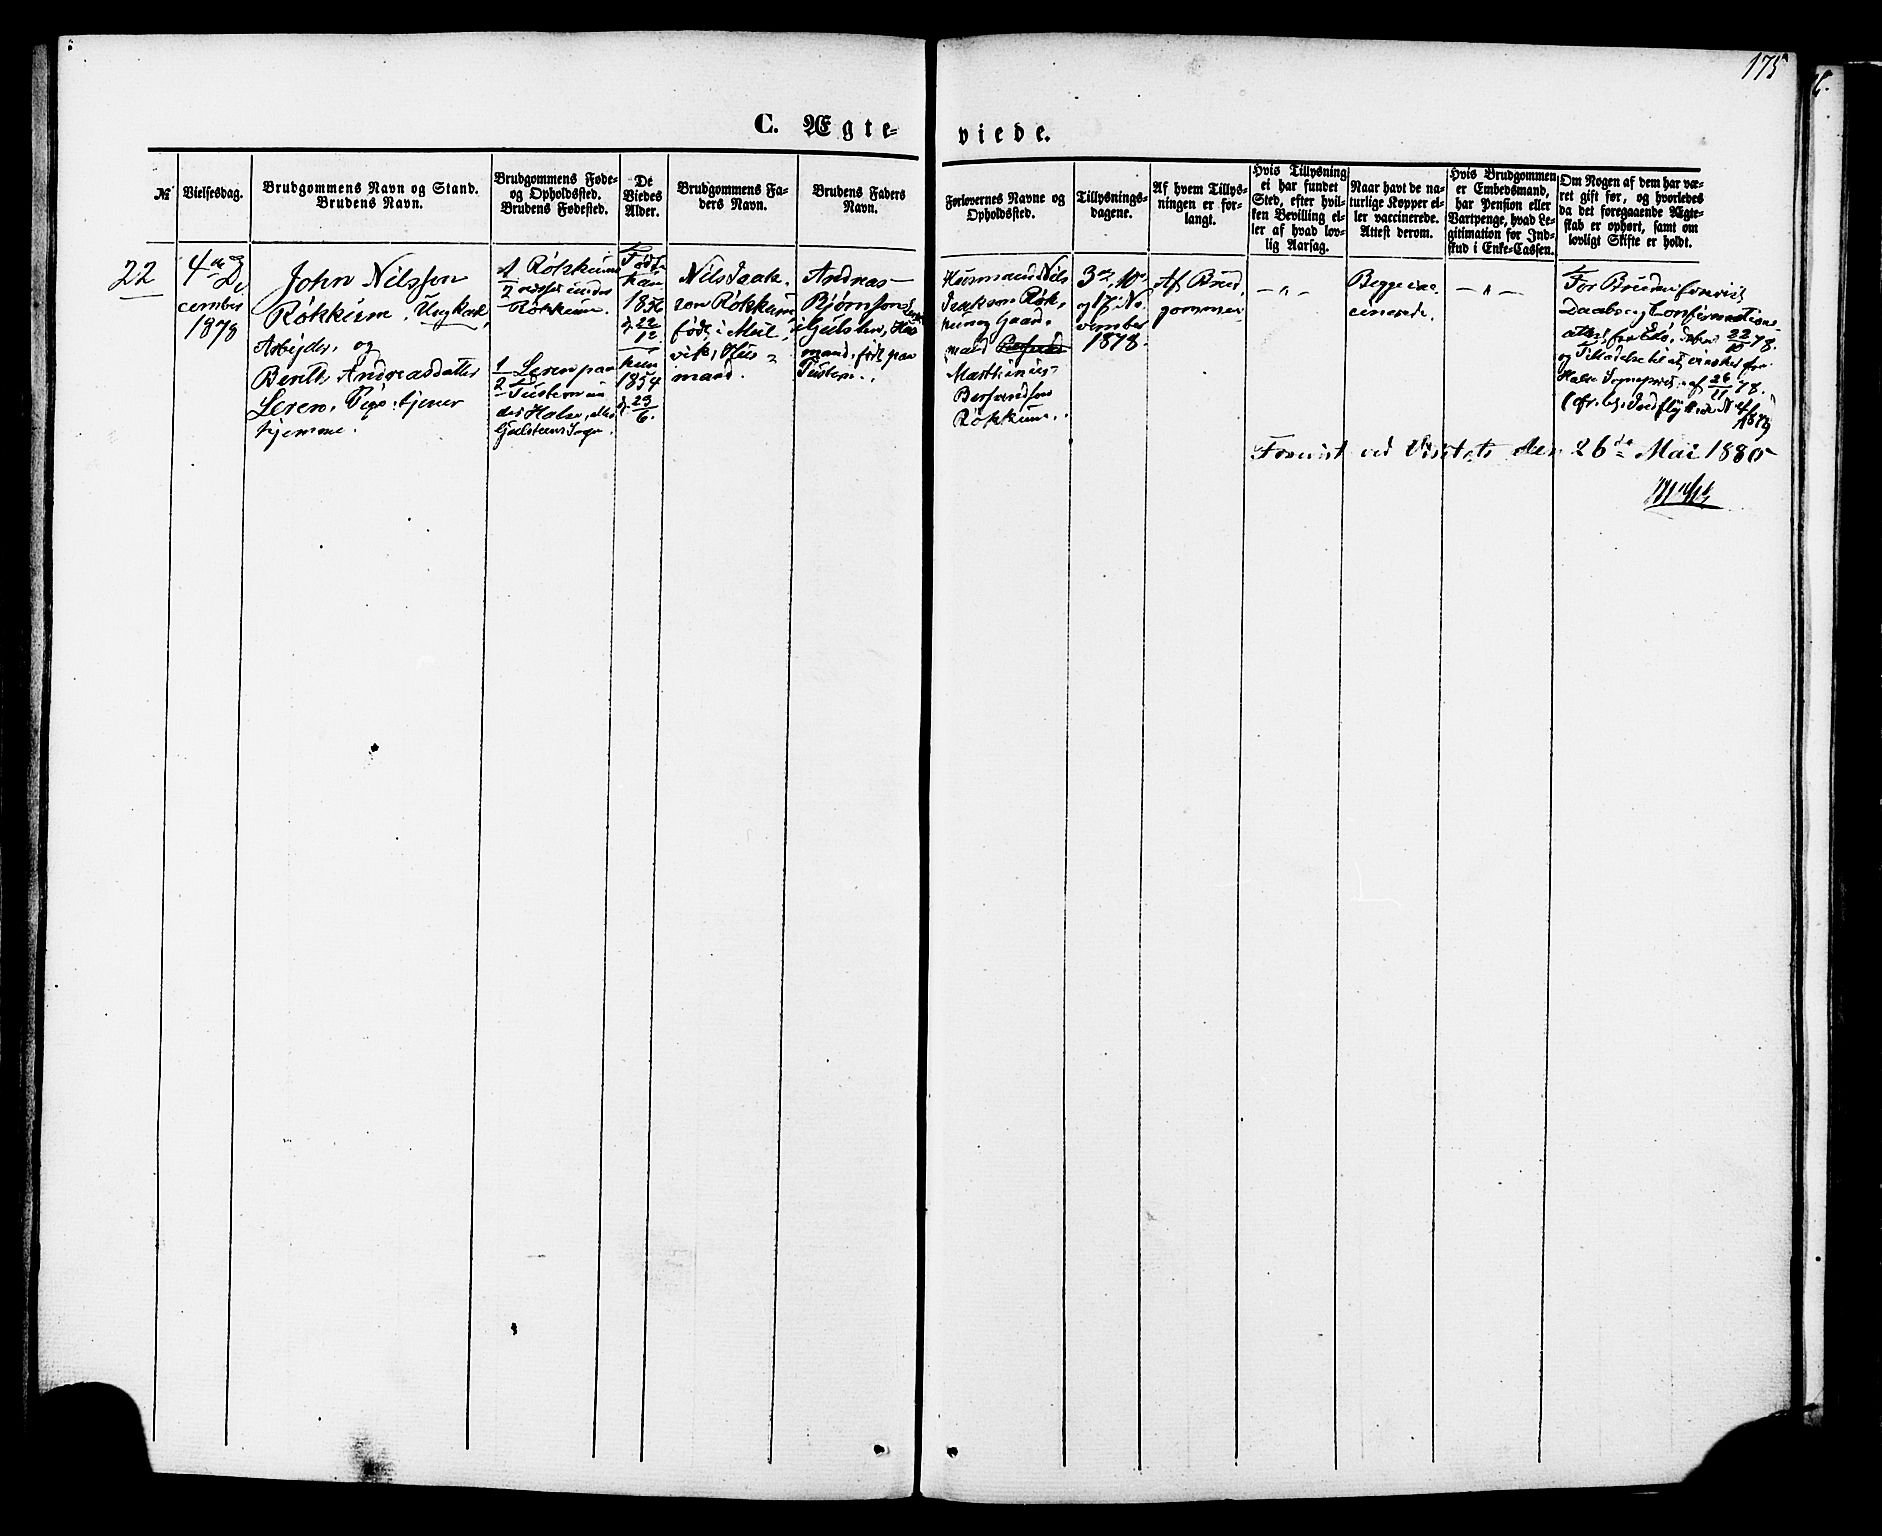 175
C. Ægte-
viede.
№
Vielsesdag.
Brudgommens Navn og Stand.
Brudens Navn.
Brudgommens Føde-
og Opholdssted.
Brudens Fødested.
De
Viedes
Alder.
Brudgommens Fa-
ders Navn.
Brudens Faders
Navn.
Forlovernes Navne og
Opholdssted.
Tillysnings-
dagene.
Af hvem Tillys-
ningen er for-
langt.
Hvis Tillysning
ei har fundet
Sted, efter hvil-
ken Bevilling el-
ler af hvad lov-
lig Aarsag.
Naar havt de na-
turlige Kopper el-
ler vaccinerede.
Attest derom.
Hvis Brudgommen
er Embedsmand,
har Pension eller
Vartpenge, hvad Le-
gitimation for Ind-
skud i Enke-Cassen.
Om Nogen af dem har væ-
ret gift før, og hvorledes
da det foregaaende Ægte-
skab er ophørt, samt om
lovligt Skifte er holdt.
22
4de De
cember
1878
John Nilsson
Røkkum, Ungkarl,
Arbejder, og
Berith Andreasdatter
Leren, Pige, tjener
hjemme.
1 Røkkum
2 Røkkum.
1 Leren paa
2 Tustern un
der Halse,
Født
han
1856
d. 22/12.
hun
1854
d. 23/6.
Nils Isak-
son Røkkum,
født i Meil-
vik, Hus-
mand.
Andreas
Bjørnsson
Gulsten, Hus
mand, født paa
Tustern.
Husmand Nils
Isakson Røk-
kum og Gaard-
mand
Mathinus
Røkkum.
3de, 10de
og 17de No-
vember
1878.
Af Brud-
gommen
— " —
Begge vac-
cinerede.
— " —
For Bruden forevist
Daabs og Confirmations-
attest fra Edø, 22/10 78.
og Tilladelse til at
Halse Sognepræst af 26/11 78.
Forevist ved Visitats den 26de Mai 1880